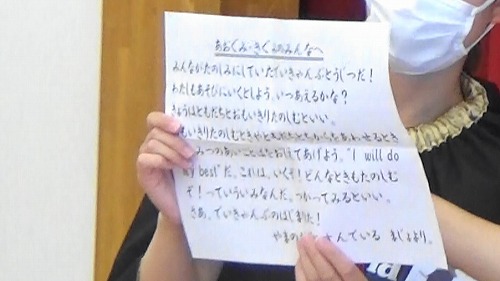 あおくみ・きくみのみんなへ
みんながたのしみにしていたでいきゃんぷとうじつだ！
わたしもあそびにいくとしよう。いつあえるかな？
きょうはともだちとおもいきりたのしむといい。
もいきりたのしむときや
みつのあいことばをおしえてあげよう。"I will do
my best"だ。これは、いくぞ！どんなときもたのしむ
ぞ！っていういみなんだ。つかってみるといい。
さあ、でいきゃんぷのはじまりだ！
やまの さんでいる まじょより。